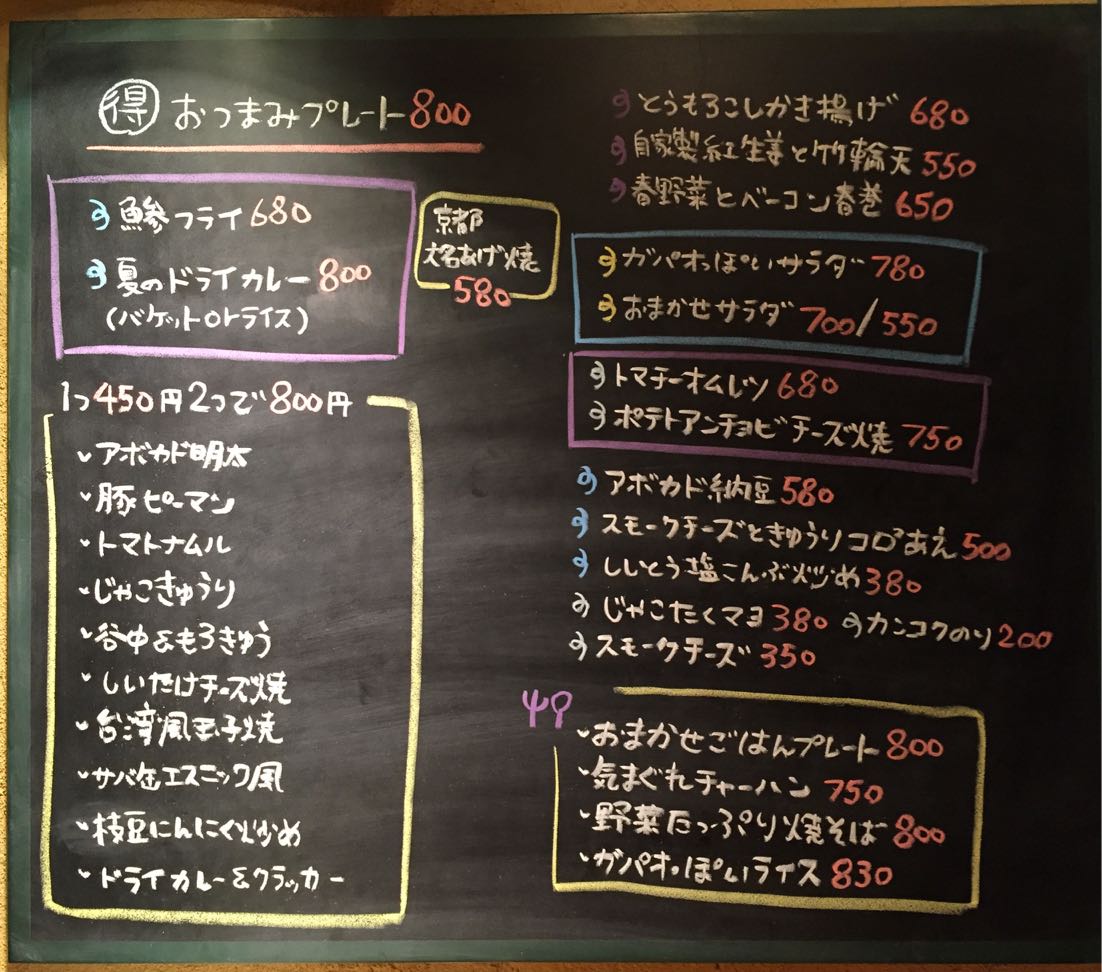 得 おつまみプレート800
鯵フライ680
夏のドライカレー800
(バケットorライス)
京都
大名あげ焼
580
1つ450円2つで800円
アボカド明太
豚ピーマン
トマトナムル
じゃこきゅうり
谷中&もろきゅう
しいたけチーズ焼
台湾風玉子焼
サバ缶エスニック風
枝豆にんにく炒め
ドライカレー&クラッカー
とうもろこしかき揚げ 680
自家製紅生姜と竹輪天 550
春野菜とベーコン春巻 650
ガパオっぽいサラダ 780
おまかせサラダ 700/550
トマチーオムレツ 680
ポテトアンチョビチーズ焼 750
アボカド納豆 580
スモークチーズときゅうりコロコロあえ 500
ししとう塩こんぶ炒め 380
じゃこたくマヨ 380 カンコクのり 200
スモークチーズ 350
おまかせごはんプレート 800
気まぐれチャーハン 750
野菜たっぷり焼そば 800
ガパオっぽいライス 830